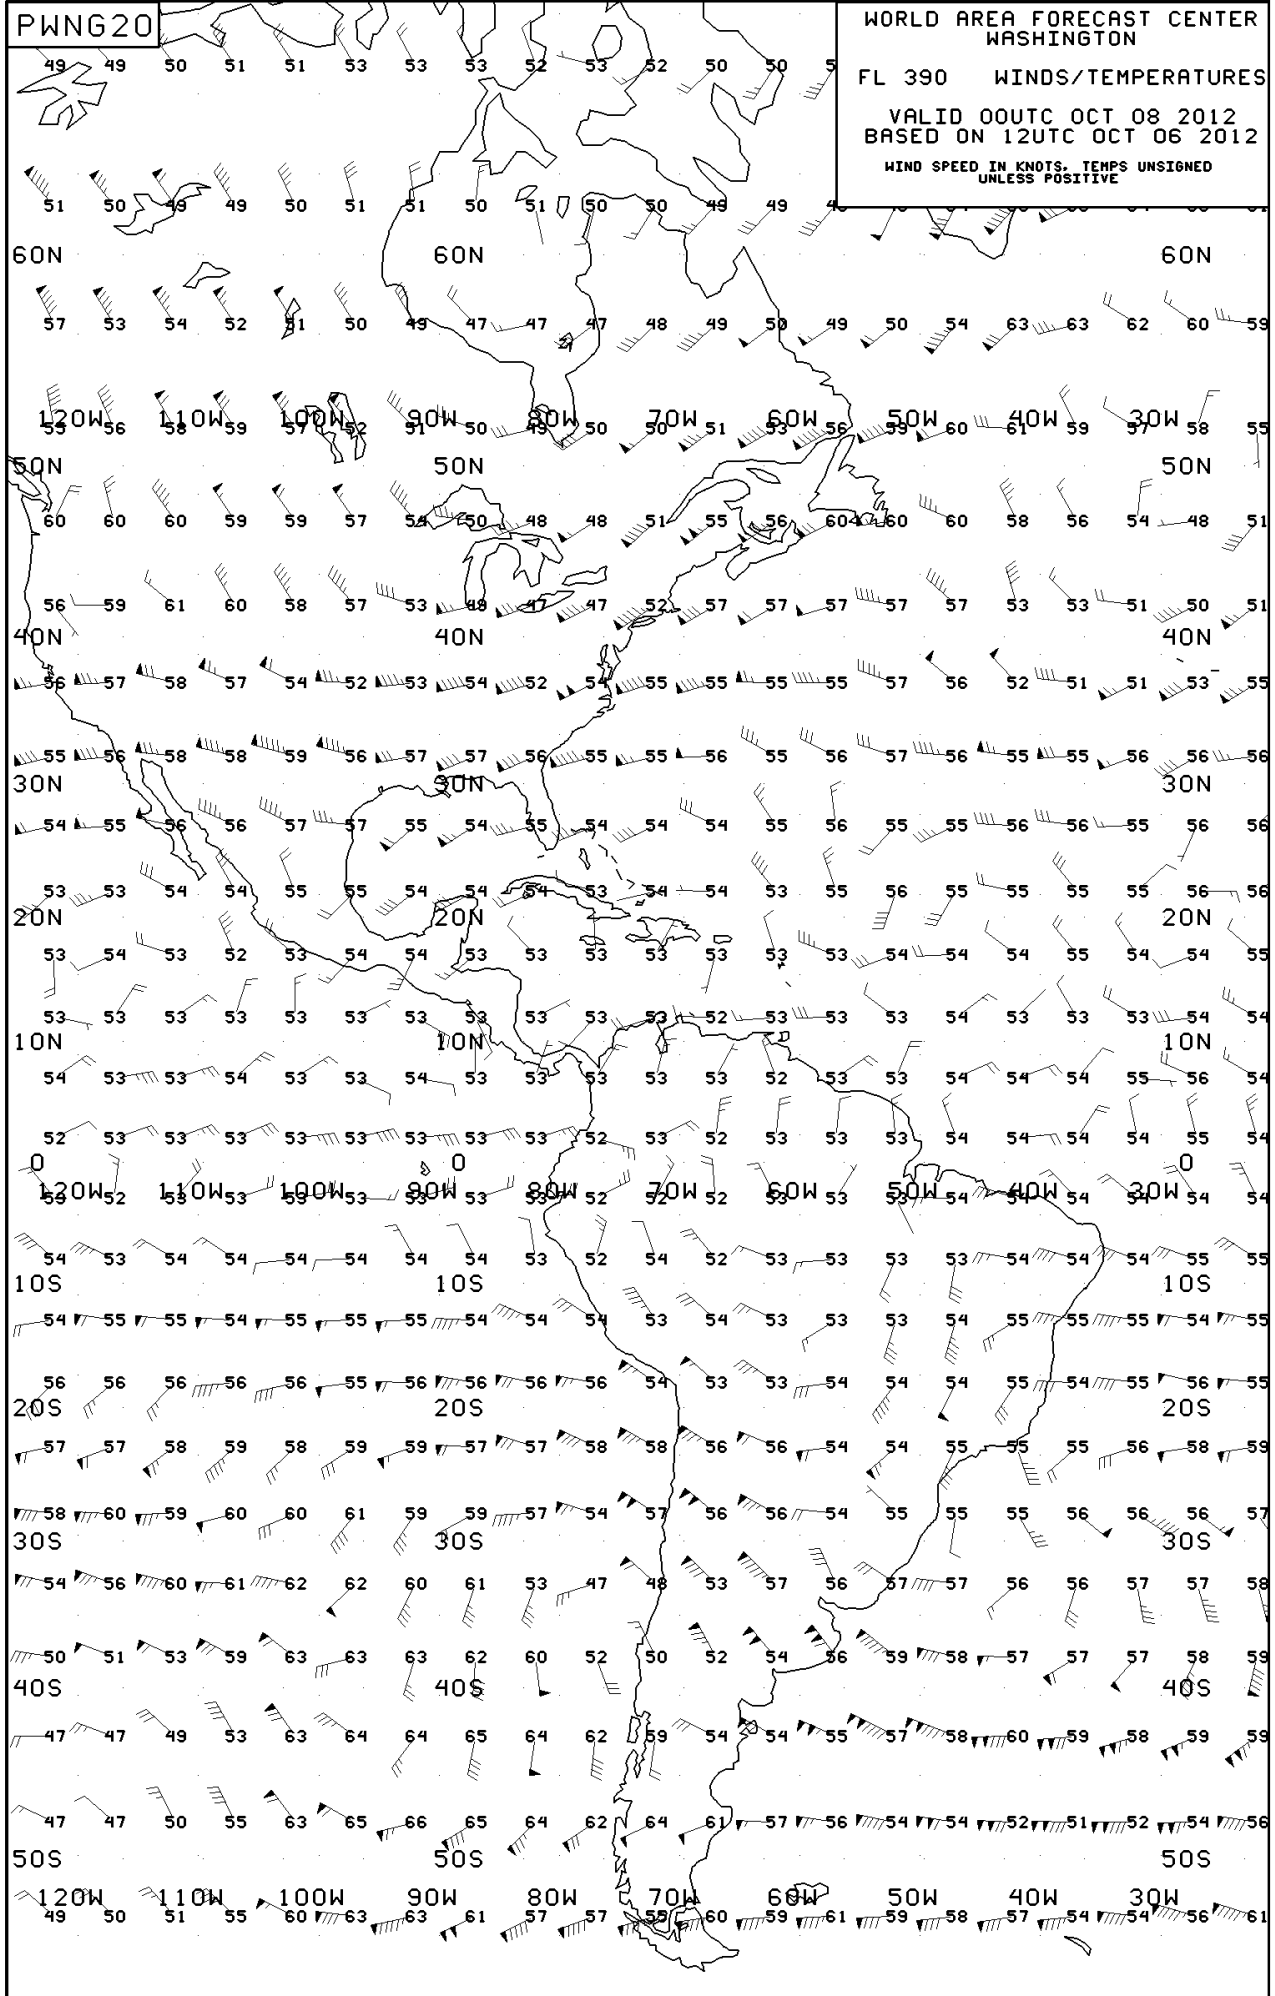 PWNG20
WORLD AREA FORECAST CENTER
WASHINGTON
FL 390 WINDS/TEMPERATURES
VALID 00UTC OCT 08 2012
BASED ON 12UTC OCT 06 2012
WIND SPEED IN KNOTS, TEMPS UNSIGNED
UNLESS POSITIVE
49 49 50 51 51 53 53 53 52 53 52 50 50
51 50 49 49 50 51 51 50 51 50 50 49 49
60N 60N 60N
57 53 54 52 51 50 49 47 47 47 48 49 50 49 50 54 63 63 62 60 59
120W 110W 100W 90W 80W 70W 60W 50W 40W 30W
55 56 58 59 57 52 51 50 49 50 50 51 53 56 59 60 61 59 57 58 55
50N 50N 50N
60 60 60 59 59 57 54 50 48 48 51 55 56 60 60 60 58 56 54 48 51
56 59 61 60 58 57 53 49 47 47 52 57 57 57 57 57 53 53 51 50 51
40N 40N 40N
56 57 58 57 54 52 53 54 52 54 55 55 55 55 57 56 52 51 51 53 55
55 56 58 58 59 56 57 57 56 55 55 56 55 56 57 56 55 55 56 56 56
30N 30N 30N
54 55 56 56 57 57 55 54 55 54 54 54 55 56 55 55 56 56 55 56 56
53 53 54 54 55 55 54 54 54 53 54 54 53 55 56 55 55 55 55 56 56
20N 20N 20N
53 54 53 52 53 54 54 53 53 53 53 53 53 53 54 54 54 55 54 54 55
53 53 53 53 53 53 53 53 53 53 53 52 53 53 53 54 53 53 53 54 54
10N 10N 10N
54 53 53 54 53 53 54 53 53 53 53 53 52 53 53 54 54 54 55 56 54
52 53 53 53 53 53 53 53 53 52 53 52 53 53 53 54 54 54 54 55 54
0 0 0
120W 110W 100W 90W 80W 70W 60W 50W 40W 30W
53 52 53 53 53 53 53 53 53 52 52 52 53 53 53 54 54 54 54 54 54
54 53 54 54 54 54 54 54 53 52 54 52 53 53 53 53 54 54 54 55 55
10S 10S 10S
54 55 55 54 55 55 55 54 54 54 53 54 53 53 53 54 55 55 55 54 55
56 56 56 56 56 55 56 56 56 56 54 53 53 54 54 54 55 54 55 56 55
20S 20S 20S
57 57 58 59 58 59 59 57 57 58 58 56 56 54 54 55 55 55 56 58 59
58 60 59 60 60 61 59 59 57 54 57 56 56 54 55 55 55 56 56 56 57
30S 30S 30S
54 56 60 61 62 62 60 61 53 47 48 53 57 56 57 57 56 56 57 57 58
50 51 53 59 63 63 63 62 60 52 50 52 54 56 59 58 57 57 57 58 59
40S 40S 40S
47 47 49 53 63 64 64 65 64 62 59 54 54 55 57 58 60 59 58 59 59
47 47 50 55 63 65 66 65 64 62 64 61 57 56 54 54 52 51 52 54 56
50S 50S 50S
120W 110W 100W 90W 80W 70W 60W 50W 40W 30W
49 50 51 55 60 63 63 61 57 57 55 60 59 61 59 58 57 54 54 56 61